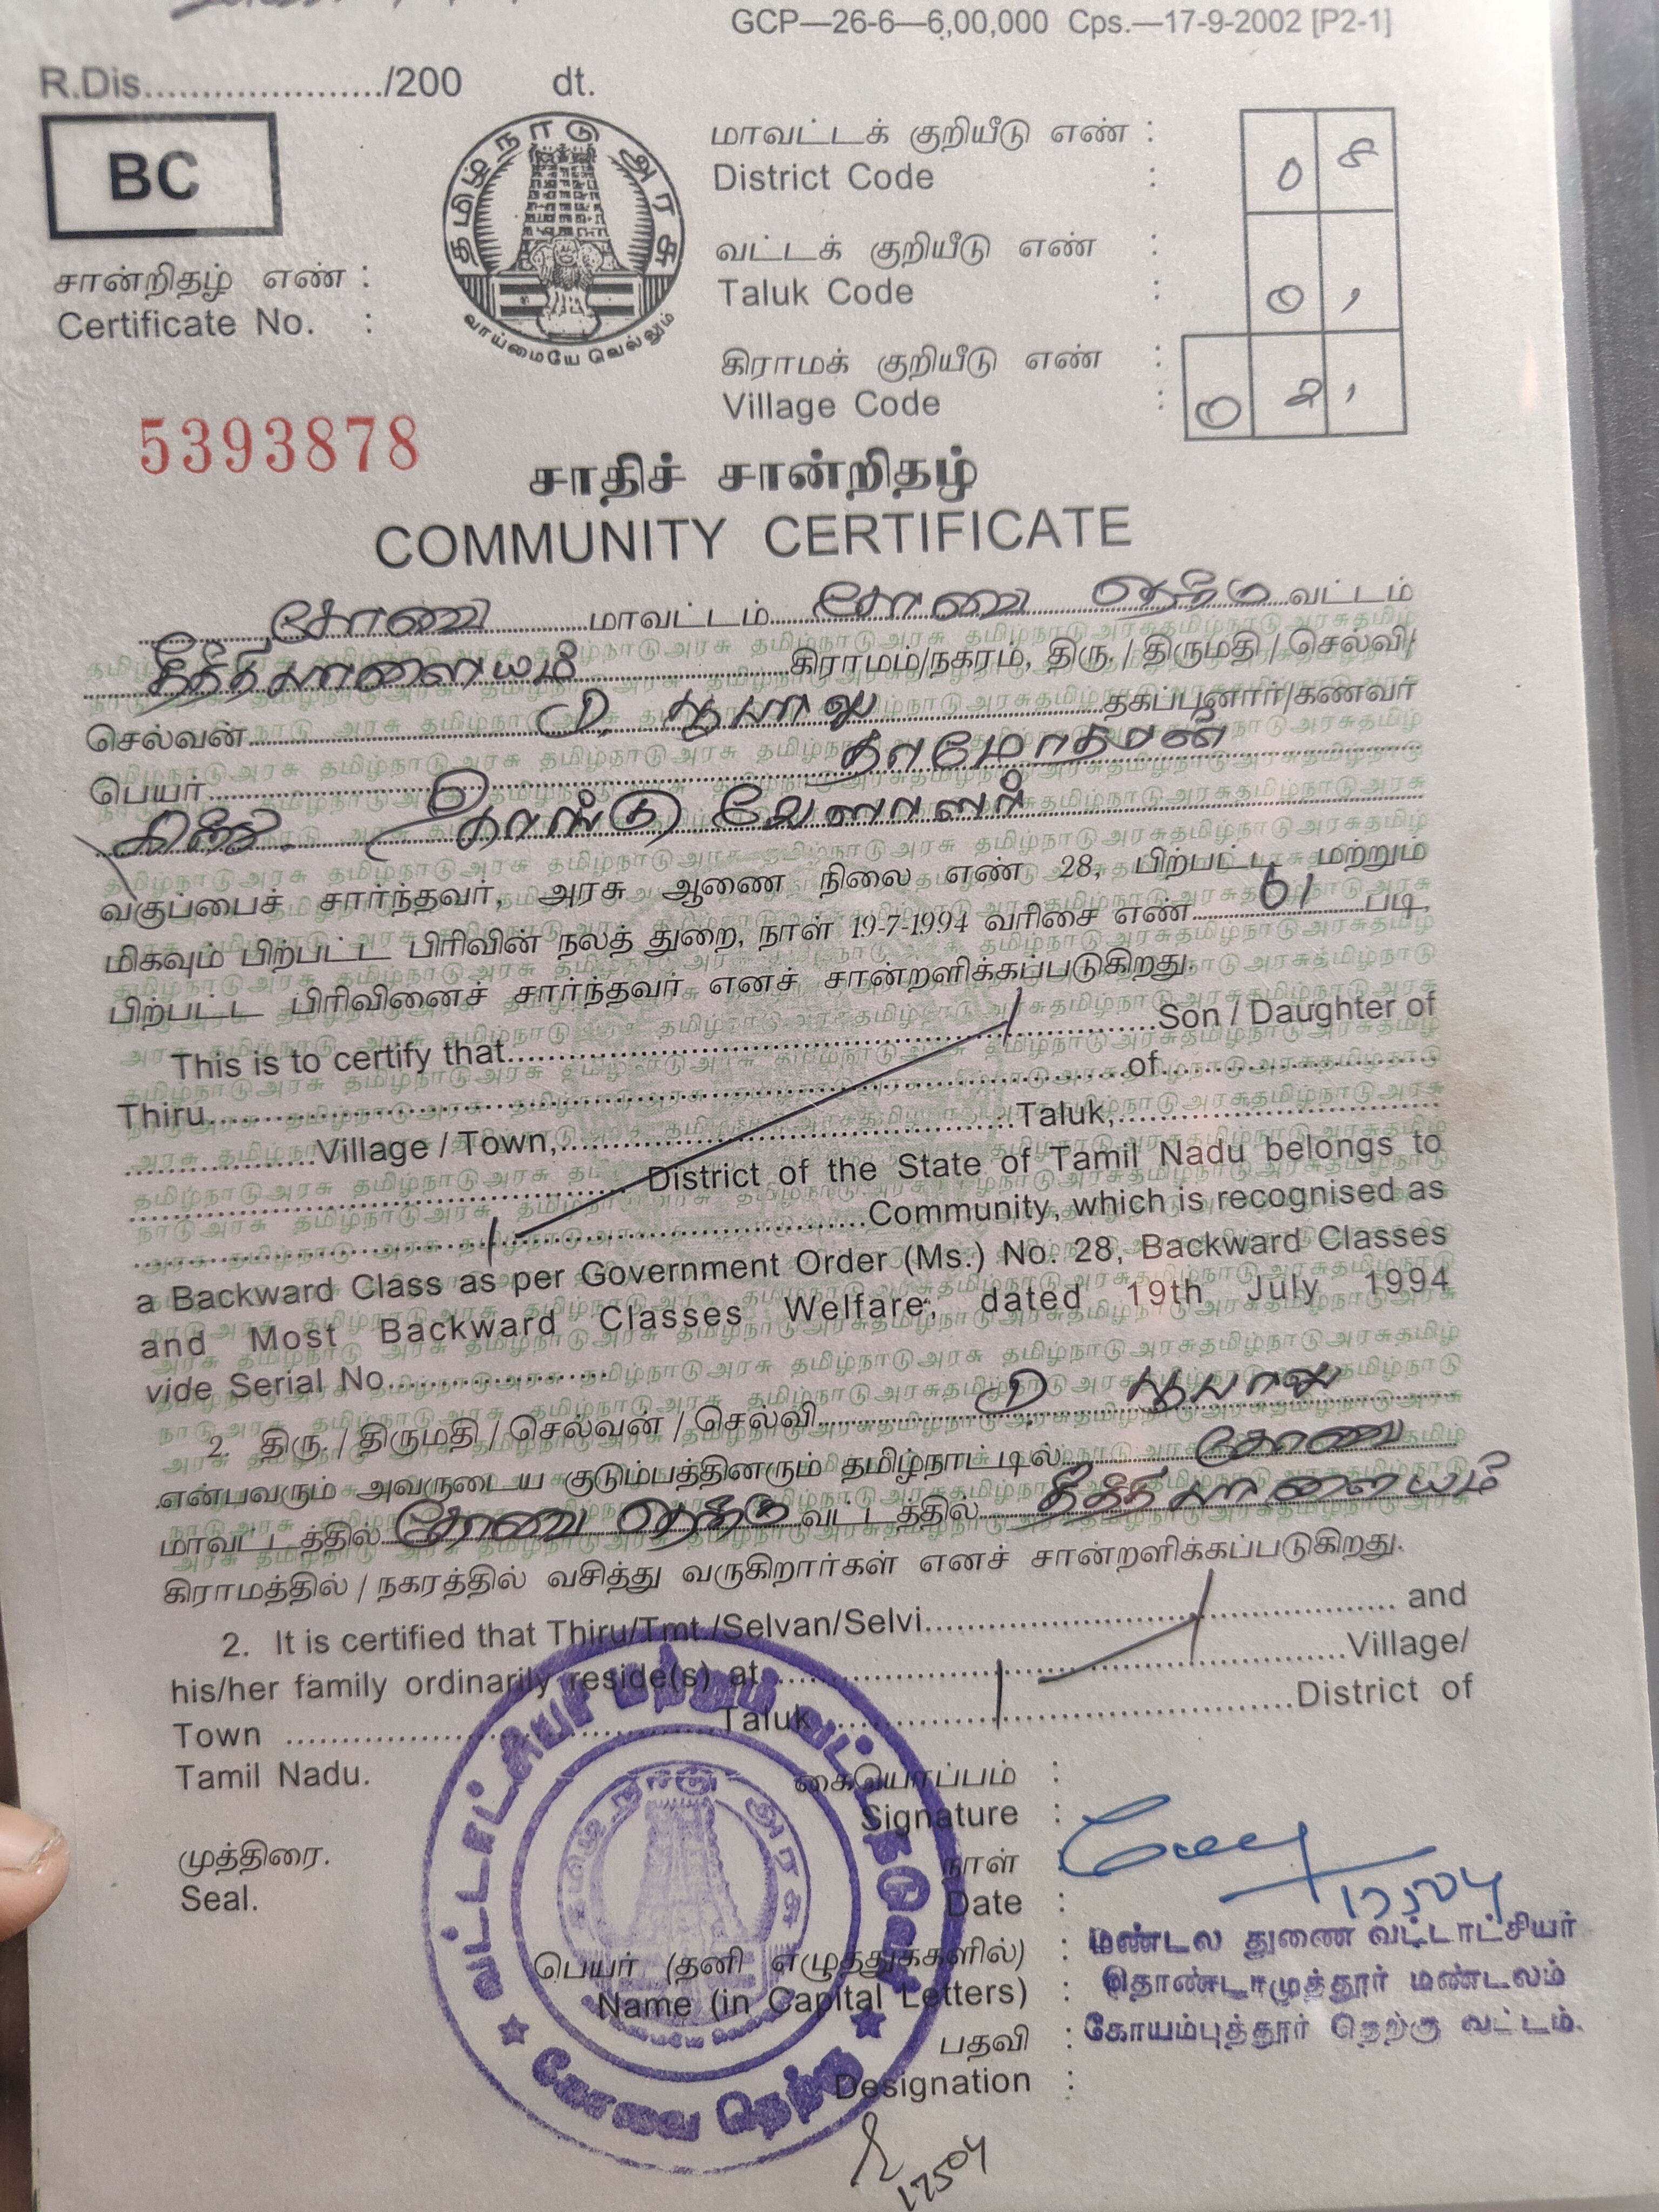 GCP—26-6—6,00,000 Cps.—17-9-2002 [P2-1]
R.Dis...................../200 dt.
BC
தமிழ்நாடு அரசு
வாய்மையே வெல்லும்
மாவட்டக் குறியீடு எண் :
District Code : 0 8
வட்டக் குறியீடு எண் :
Taluk Code : 0 1
கிராமக் குறியீடு எண் :
Village Code : 0 2 1
சான்றிதழ் எண் :
Certificate No. :
5393878
சாதிச் சான்றிதழ்
COMMUNITY CERTIFICATE
கோவை மாவட்டம் கோவை தெற்கு வட்டம்
தீத்திபாளையம் கிராமம்/நகரம், திரு. / திருமதி / செல்வி/
செல்வன் தகப்பனார்/கணவர்
பெயர் தாமோதரன்
வேளாளர்
வகுப்பைச் சார்ந்தவர், அரசு ஆணை நிலை எண் 28, பிற்பட்ட மற்றும்
மிகவும் பிற்பட்ட பிரிவின் நலத் துறை, நாள் 19-7-1994 வரிசை எண் 61 படி,
பிற்பட்ட பிரிவினைச் சார்ந்தவர் எனச் சான்றளிக்கப்படுகிறது.
This is to certify that..............................Son / Daughter of
Thiru..............................of....................
....................Village / Town,..............................Taluk,....................
.............................. District of the State of Tamil Nadu belongs to
..............................Community, which is recognised as
a Backward Class as per Government Order (Ms.) No. 28, Backward Classes
and Most Backward Classes Welfare, dated 19th July 1994
vide Serial No....................
2. திரு. / திருமதி / செல்வன் / செல்வி
என்பவரும் அவருடைய குடும்பத்தினரும் தமிழ்நாட்டில் கோவை
மாவட்டத்தில் கோவை தெற்கு வட்டத்தில் தீத்திபாளையம்
கிராமத்தில் / நகரத்தில் வசித்து வருகிறார்கள் எனச் சான்றளிக்கப்படுகிறது.
2. It is certified that Thiru/Tmt./Selvan/Selvi.............................. and
his/her family ordinarily reside(s) at..............................Village/
Town ..............................Taluk ..............................District of
Tamil Nadu.
கையொப்பம் :
Signature :
முத்திரை.
Seal.
நாள்
Date :
17504
பெயர் (தனி எழுத்துக்களில்) :
Name (in Capital Letters) :
பதவி :
Designation :
மண்டல துணை வட்டாட்சியர்
தொண்டாமுத்தூர் மண்டலம்
கோயம்புத்தூர் தெற்கு வட்டம்.
கோவை தெற்கு
17504